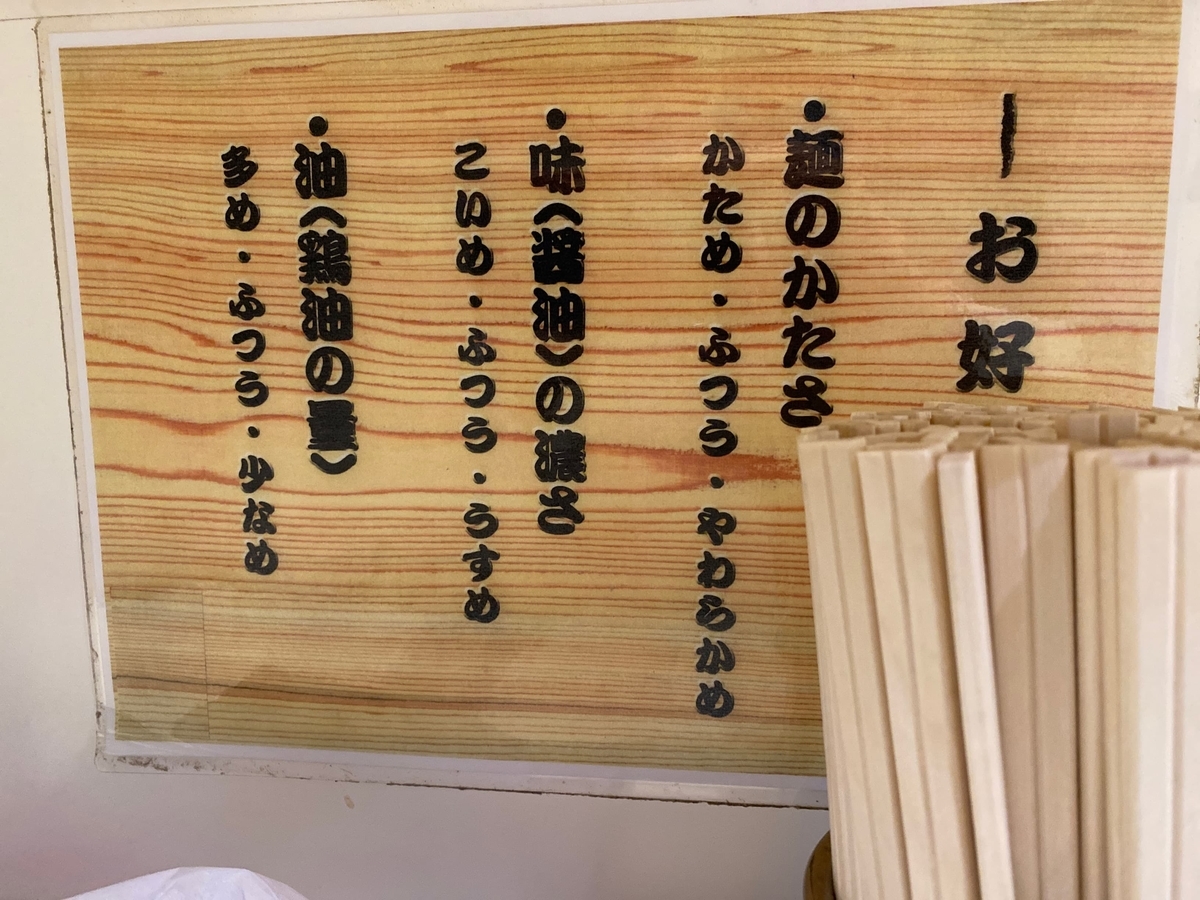 ーお好
・麺のかたさ
かため・ふつう・やわらかめ
・味(醤油)の濃さ
こいめ・ふつう・うすめ
・油(鶏油の量)
多め・ふつう・少なめ